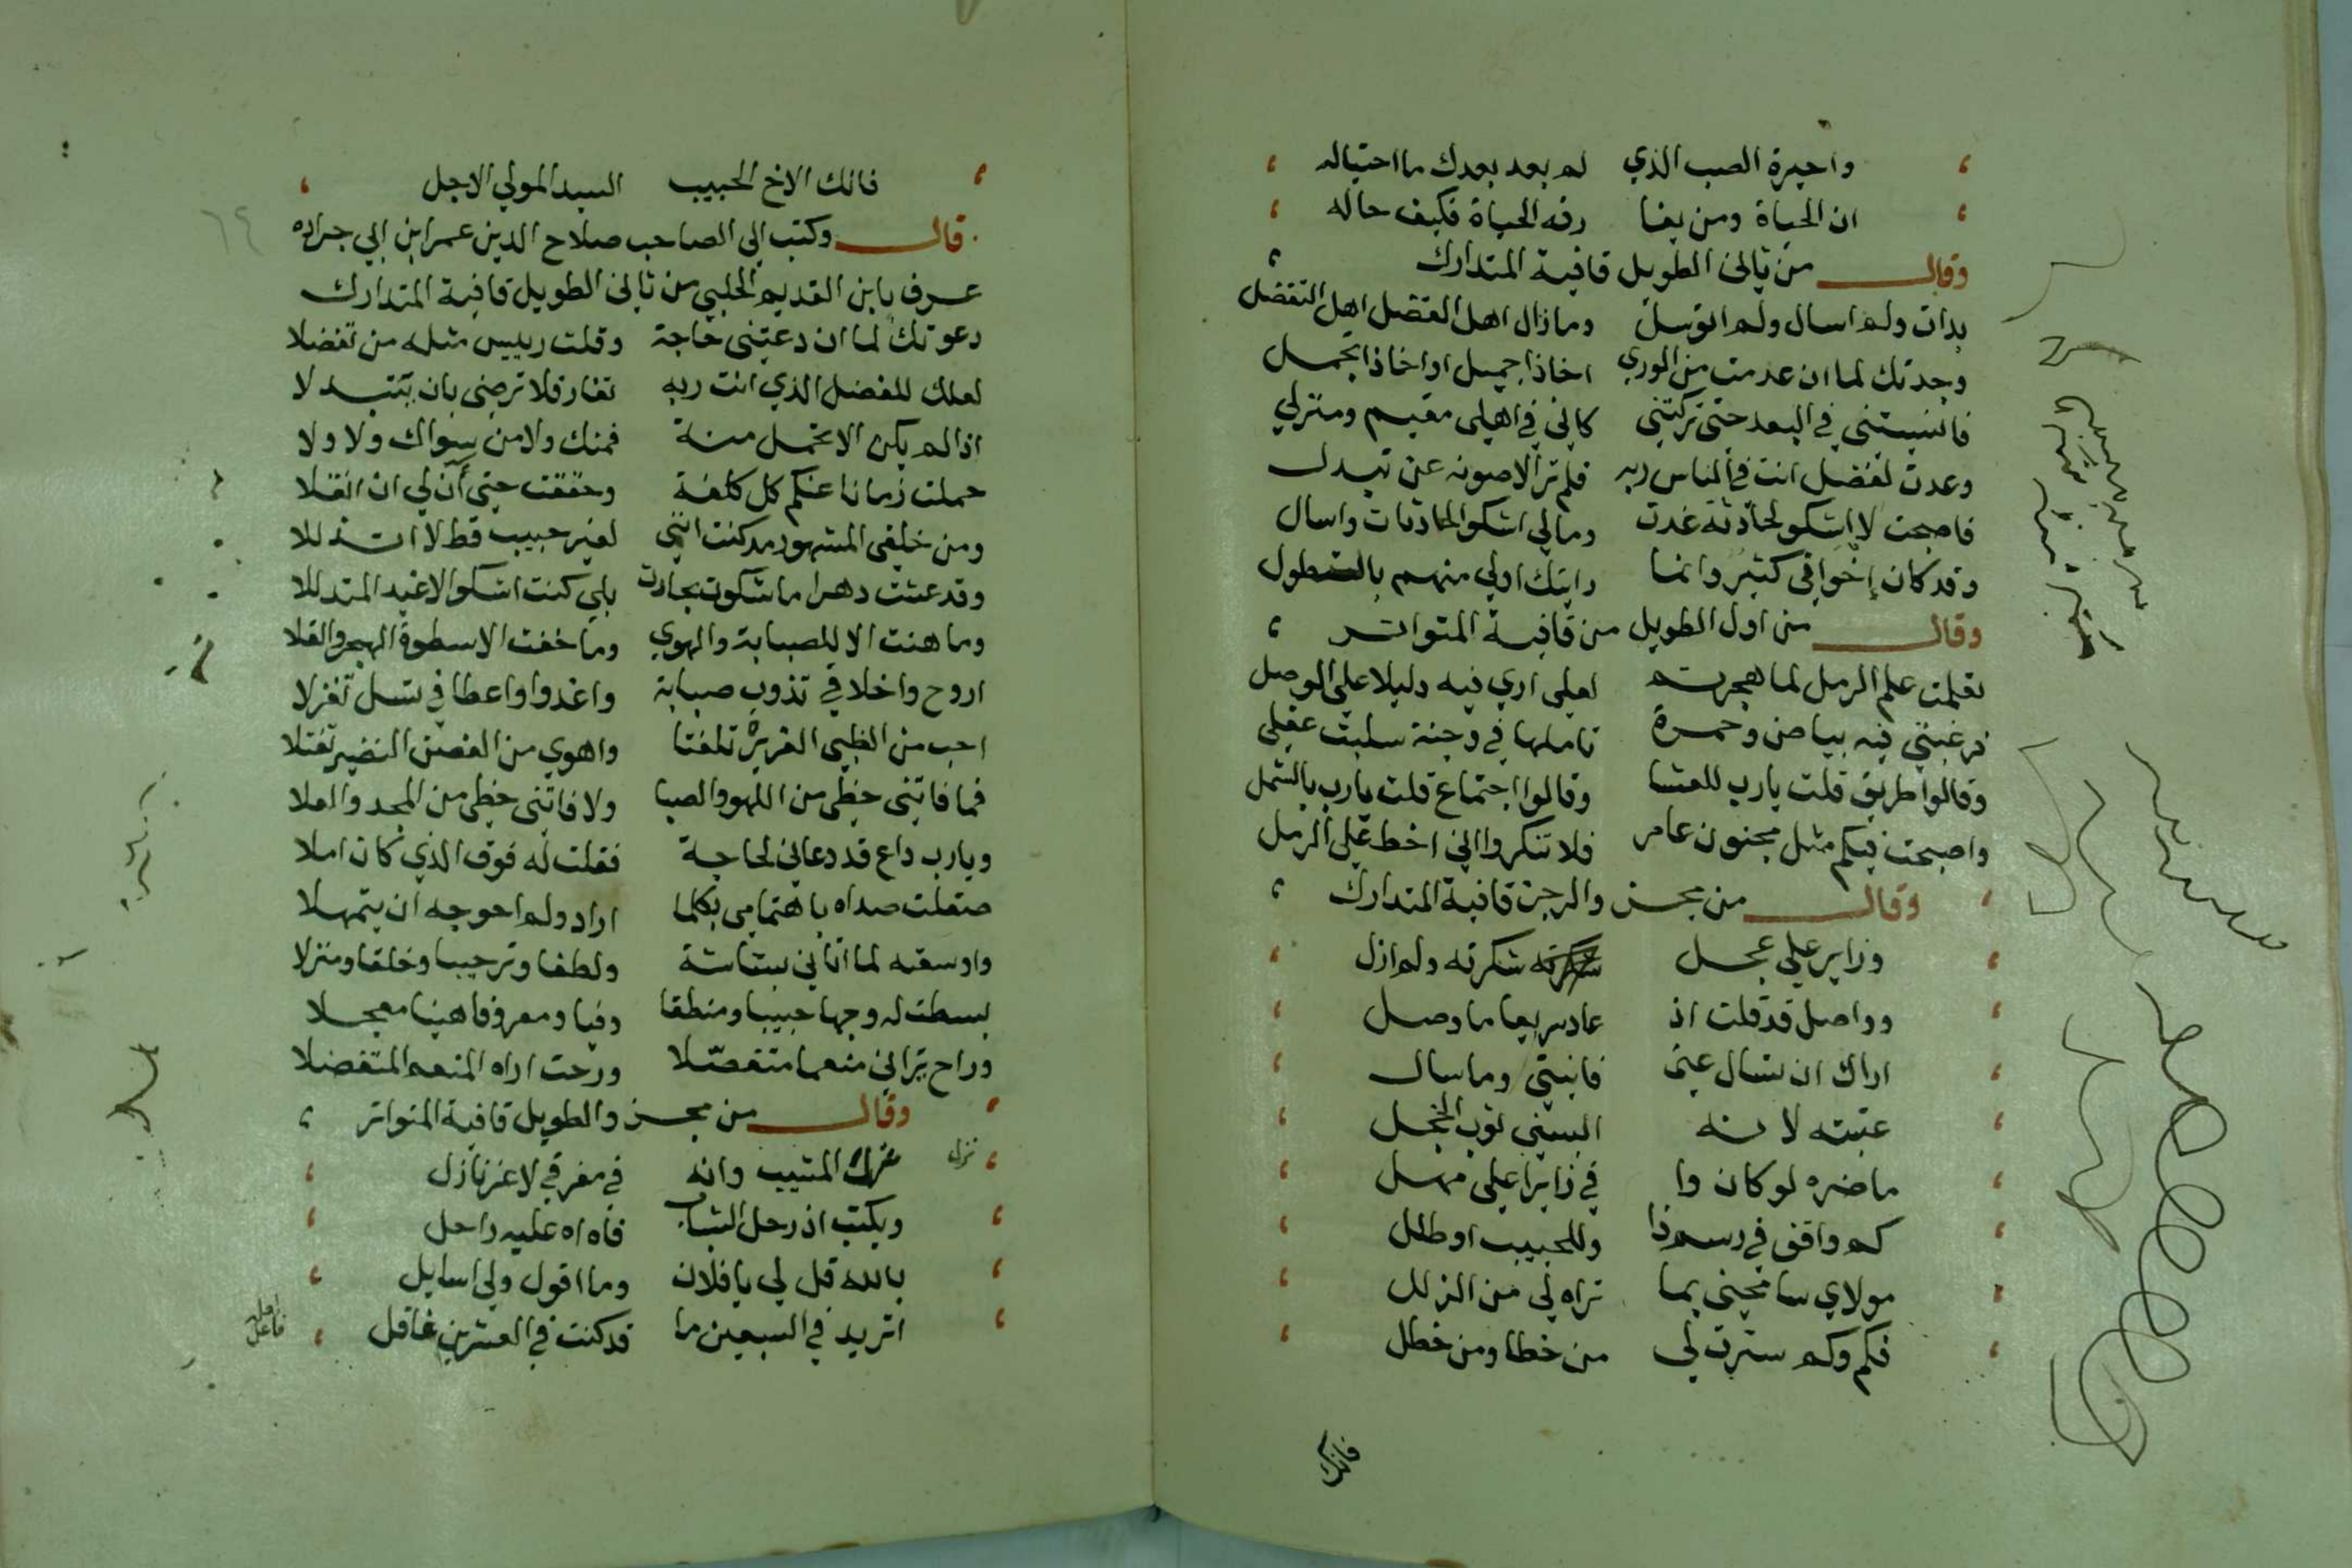 واحيرة الصب الذي لم بعد بعدك ما احتياله
ان الحياة ومن يفنا رقه الحياة فكيف حاله
وقال من ثاني الطويل قافية المتدارك
بدات ولم اسال ولم اتوسل وما زال اهل الفضل اهل التفضل
وجدتك لما ان عدمت من الوري اخاذا جميل او اخاذا تجمل
فانسيتني في البعد حتي تركتني كاني في اهلي مقيم ومنزلي
وعدت لفضل انت في الناس ربه فلم تر الا صونه عن تبدل
فاصبحت لا اشكو لحادثة غدت ومالي اشكو الحادثات واسال
وقد كان إخواني كثير وانما رايتك اولي منهم بالتطول
وقال من اول الطويل من قافية المتواتر
تعلمت علم الرمل لما هجرتم لعلي اري فيه دليلا علي الوصل
فرغبتني فيه بياض وحمرة تاملها في وجنة سلبت عقلي
وقالوا طريق قلت يارب للقا وقالوا اجتماع قلت يارب بالشمل
واصبحت فيكم مثل مجنون عامر فلا تنكروا اني اخط علي الرمل
وقال من مجزو الرجز قافية المتدارك
وزاير علي عجل شكرته ولم ازل
وواصل قد قلت اذ عاد سريعا ما وصل
اراك ان تسال عني فانثني وما سال
عتبته لانه البسني ثوب الخجل
ما ضره لو كان وا في زايرا علي مهل
كم واقف في رسم ذا وللحبيب او طلل
مولاي سامحني بما تراه لي من الزلل
فكم وكم سترت لي من خطا ومن خطل
فانك
فانك الاخ الحبيب السيد المولي الاجل
قال وكتب الي الصاحب صلاح الدين عمر ابن ابي جراده
عرف بابن القديم الحلبي من ثاني الطويل قافية المتدارك
دعوتك لما ان دعتني حاجة وقلت رييس مثله من تفضلا
لعلك للفضل الذي انت ربه تغار فلا ترضي بان تتبدلا
اذا لم يكن الا تحمل منة فمنك ولا من سواك ولا ولا
حملت زمانا عنكم كل كلفة وخففت حتي آن لي ان اثقلا
ومن خلقي المشهور مد كنت انني لغير حبيب قط لا اتذللا
وقد عشت دهرا ما شكوت بحادث بلي كنت اشكو الاغيد المتدللا
وما هنت الا للصبابة والهوي وما خفت الا سطوة الهجر والقلا
اروح واخلاقي تذوب صبابة واغدوا واعطافي تسل تغزلا
احب من الظبي الغرير تلفتا واهوي من الغصن النضير تفتلا
فما فاتني حظي من اللهو والصبا ولا فاتني حظي من المجد والعلا
ويارب داع قد دعاني لحاجة فقلت له فوق الذي كان املا
صقلت صداه باهتمامي بكلما اراد ولم احوجه ان يتمهلا
واوسعته لما اتاني بشاشة ولطفا وترحيبا وخلقا ومنزلا
بسطت له وجها حبيبا ومنطقا وفيا ومعروفا هنيا معجلا
وراح يراني منعما متفضلا ورحت اراه المنعم المتفضلا
وقال من مجزو الطويل قافية المتواتر
نزل
غرك المشيب وانه في مفرقي لاعز نازل
وبكيت اذ رحل الشباب فاه اه عليه راحل
بالله قل لي يا فلان وما اقول ولي اسايل
اتريد في السبعين ما قد كنت في العشرين غافل
فاعل